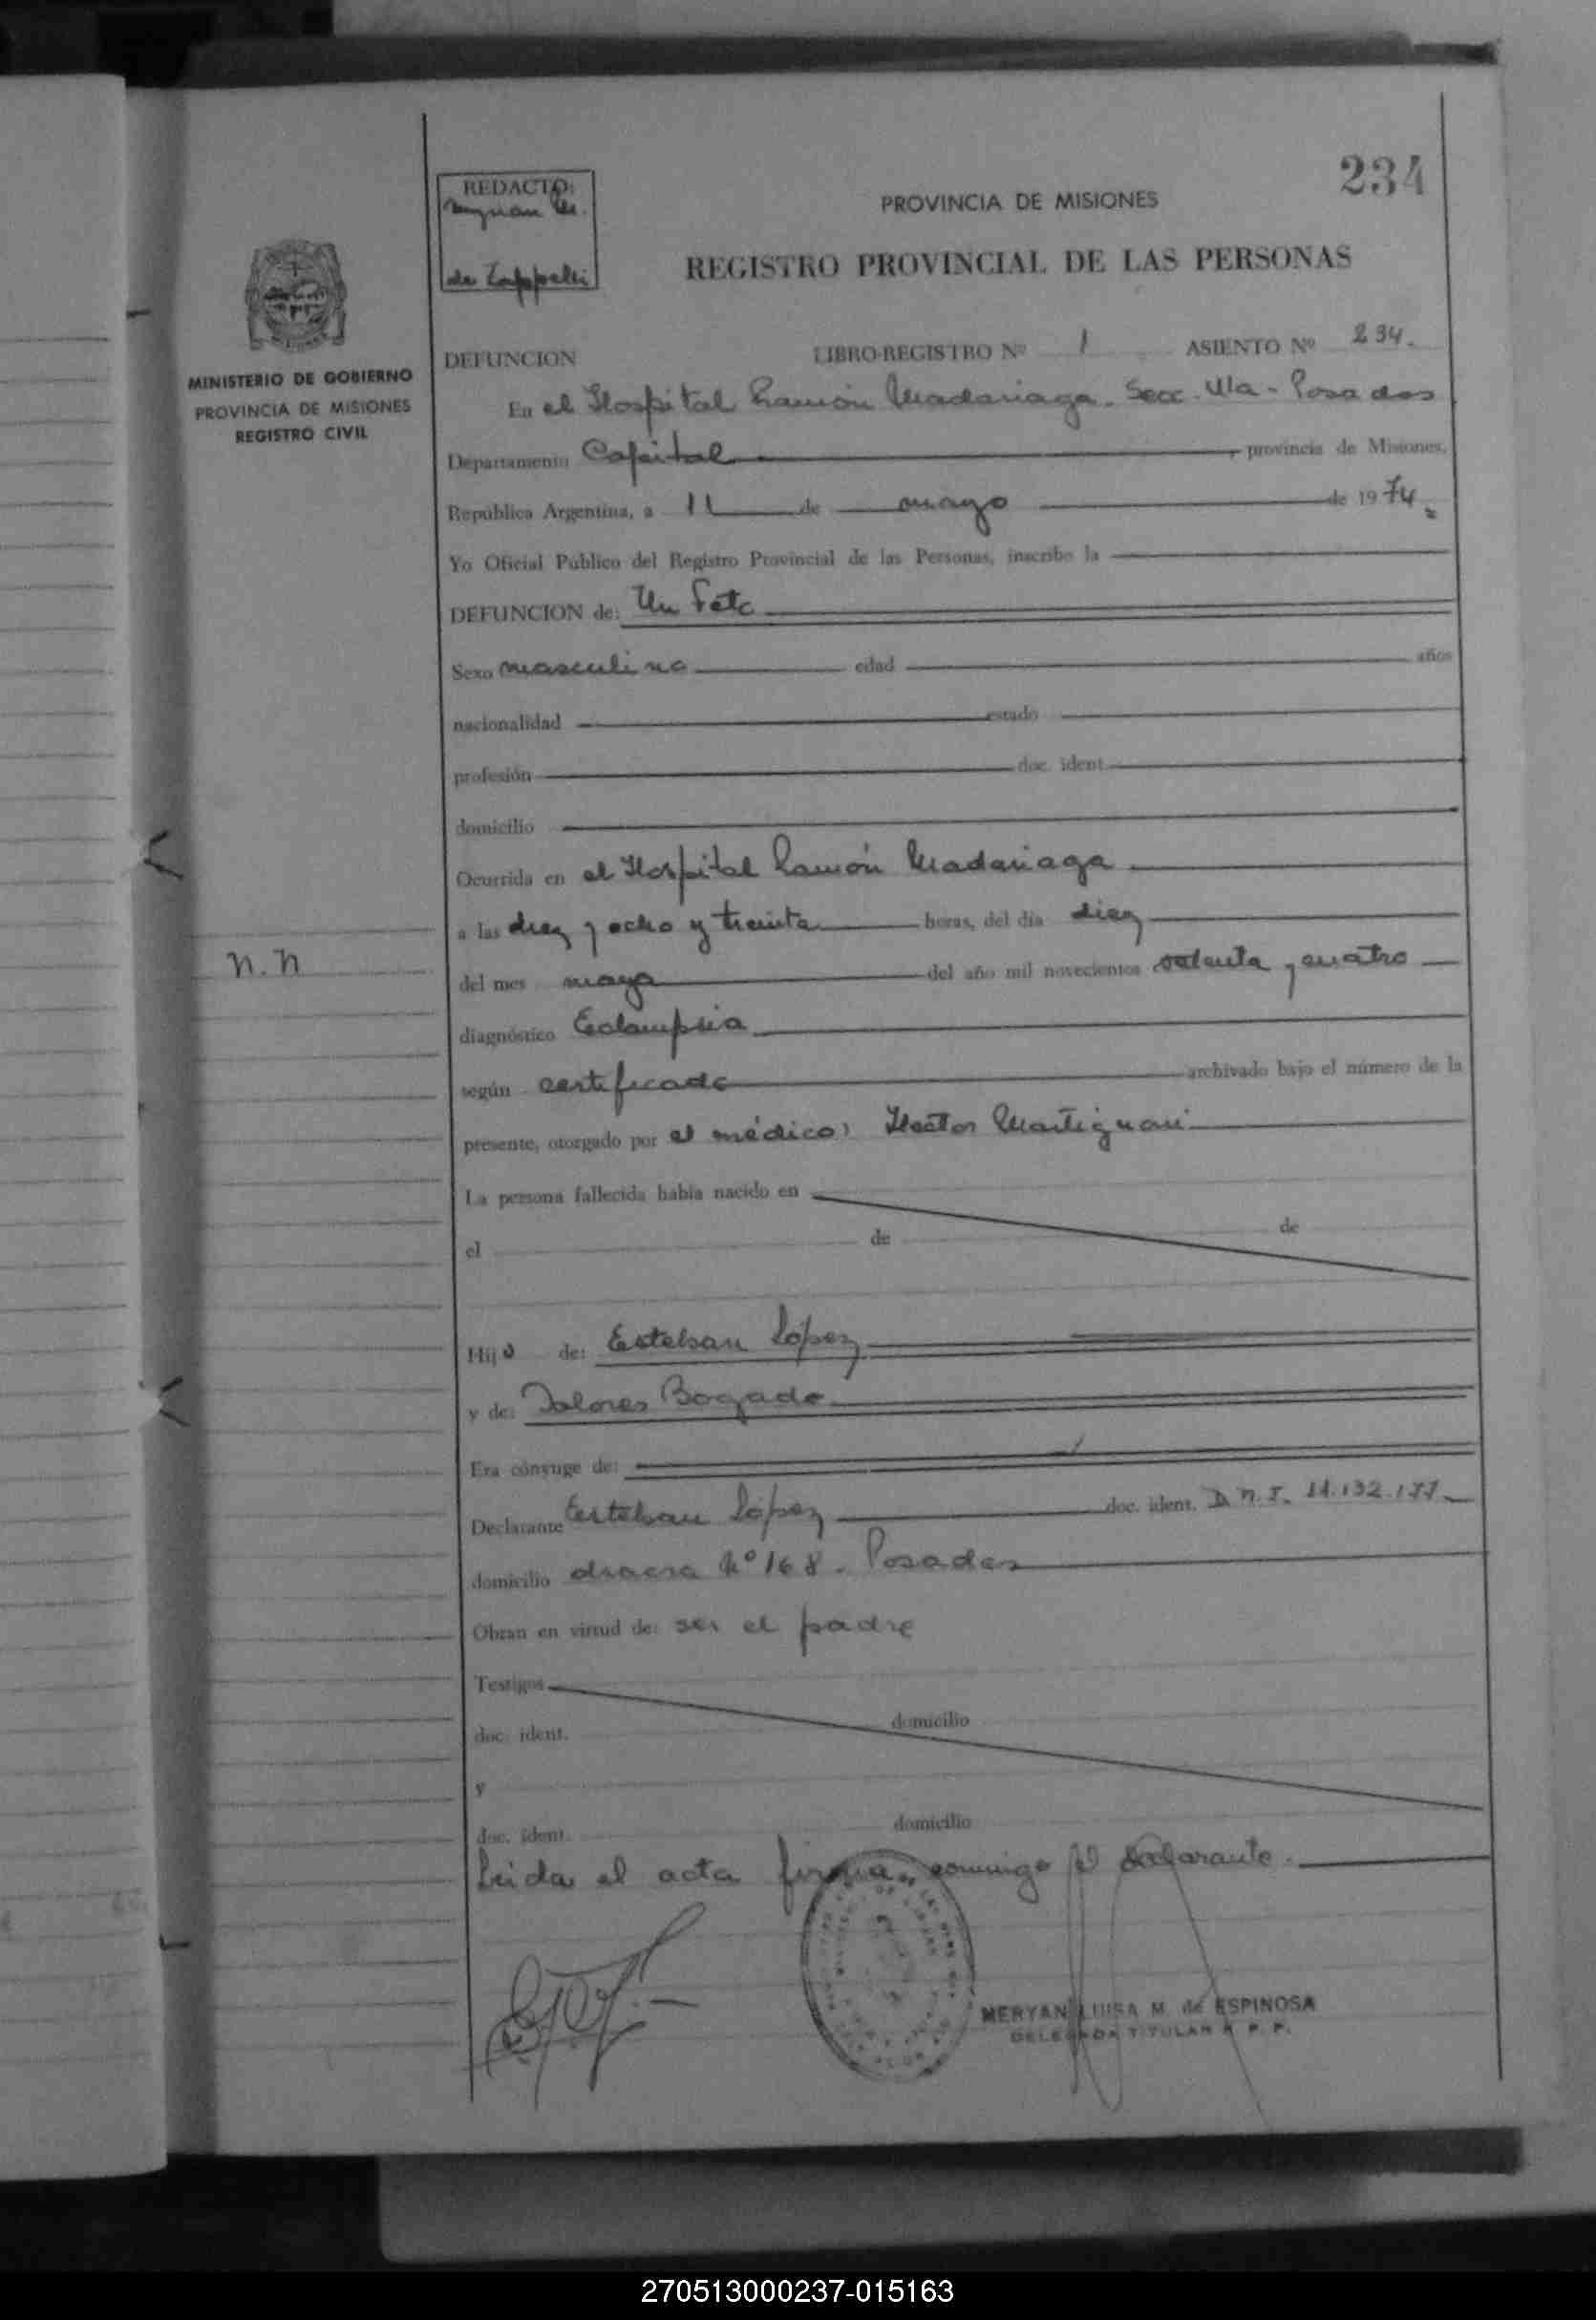 234
REDACTO:
PROVINCIA DE MISIONES
REGISTRO PROVINCIAL DE LAS PERSONAS
de Zappelli
MINISTERIO DE GOBIERNO
PROVINCIA DE MISIONES
REGISTRO CIVIL
DEFUNCION LIBRO-REGISTRO Nº 1 ASIENTO Nº 234.
En el Hospital Ramón Madariaga. Secc. Posadas
Departamento Capital, provincia de Misiones,
República Argentina, a 11 de mayo de 1974
Yo Oficial Público del Registro Provincial de las Personas, inscribo la
DEFUNCION de: Un Feto
Sexo masculino edad años
nacionalidad estado
profesión doc. ident.
domicilio
Ocurrida en el Hospital Ramón Madariaga
a las diez y ocho y treinta horas, del día diez
n.n
del mes mayo del año mil novecientos setenta y cuatro
diagnóstico Eclampsia
según certificado archivado bajo el número de la
presente, otorgado por el médico: Hector Martignoni
La persona fallecida había nacido en
el de de
Hijo de: Esteban López
y de: Dolores Bogado
Era cónyuge de:
Declarante Esteban López doc. ident. D.N.I. 11.132.177
domicilio chacra Nº 168. Posadas
Obran en virtud de: ser el padre
Testigos
doc. ident. domicilio
y
doc. ident. domicilio
Leida el acta firma conmigo el declarante.
MERYAN LUISA M. de ESPINOSA
DELEGADA TITULAR R. P. P.
270513000237-015163